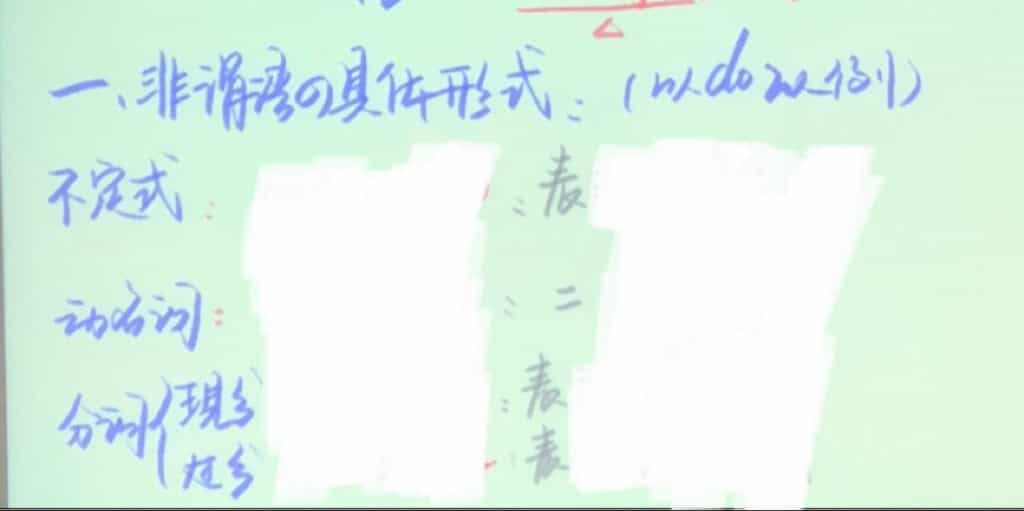 一、非谓语の具体形式：（以do为例）
不定式： ：表
动名词： ：二
分词{现分 ：表
过分 ：表